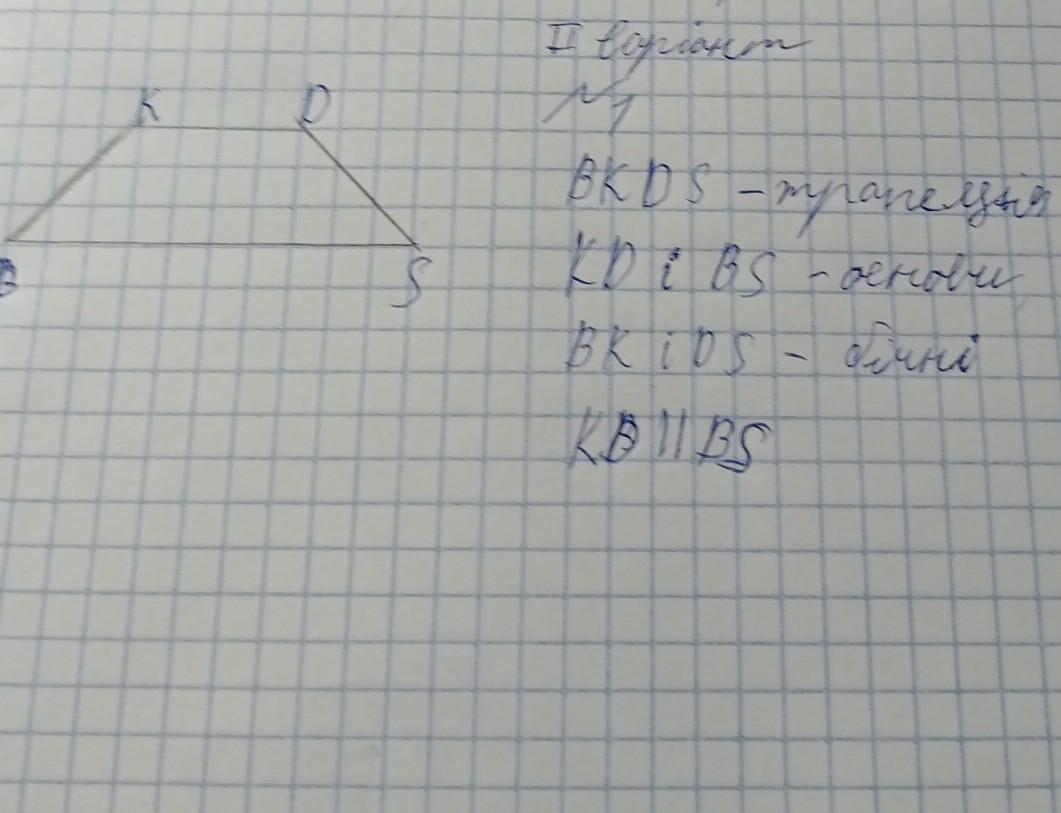 II варіант
K D
№1
BKDS - трапеція
B S
KD і BS - основи
BK і DS - бічні
KD || BS